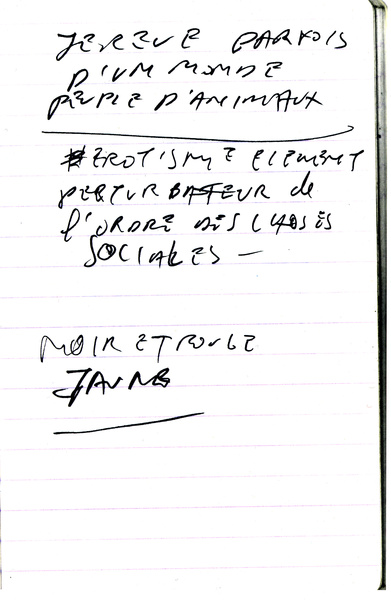 JE REVE PARFOIS
D'UM MOMDE
PEUPLE D'ANIMAUX
EROTISME ELEMENT
PERTURBATEUR de
l'ORDRE DES CHOSES
SOCIALES —
NOIR ET ROUGE
JAUNE